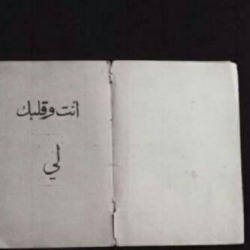 أنت وقلبك
لي